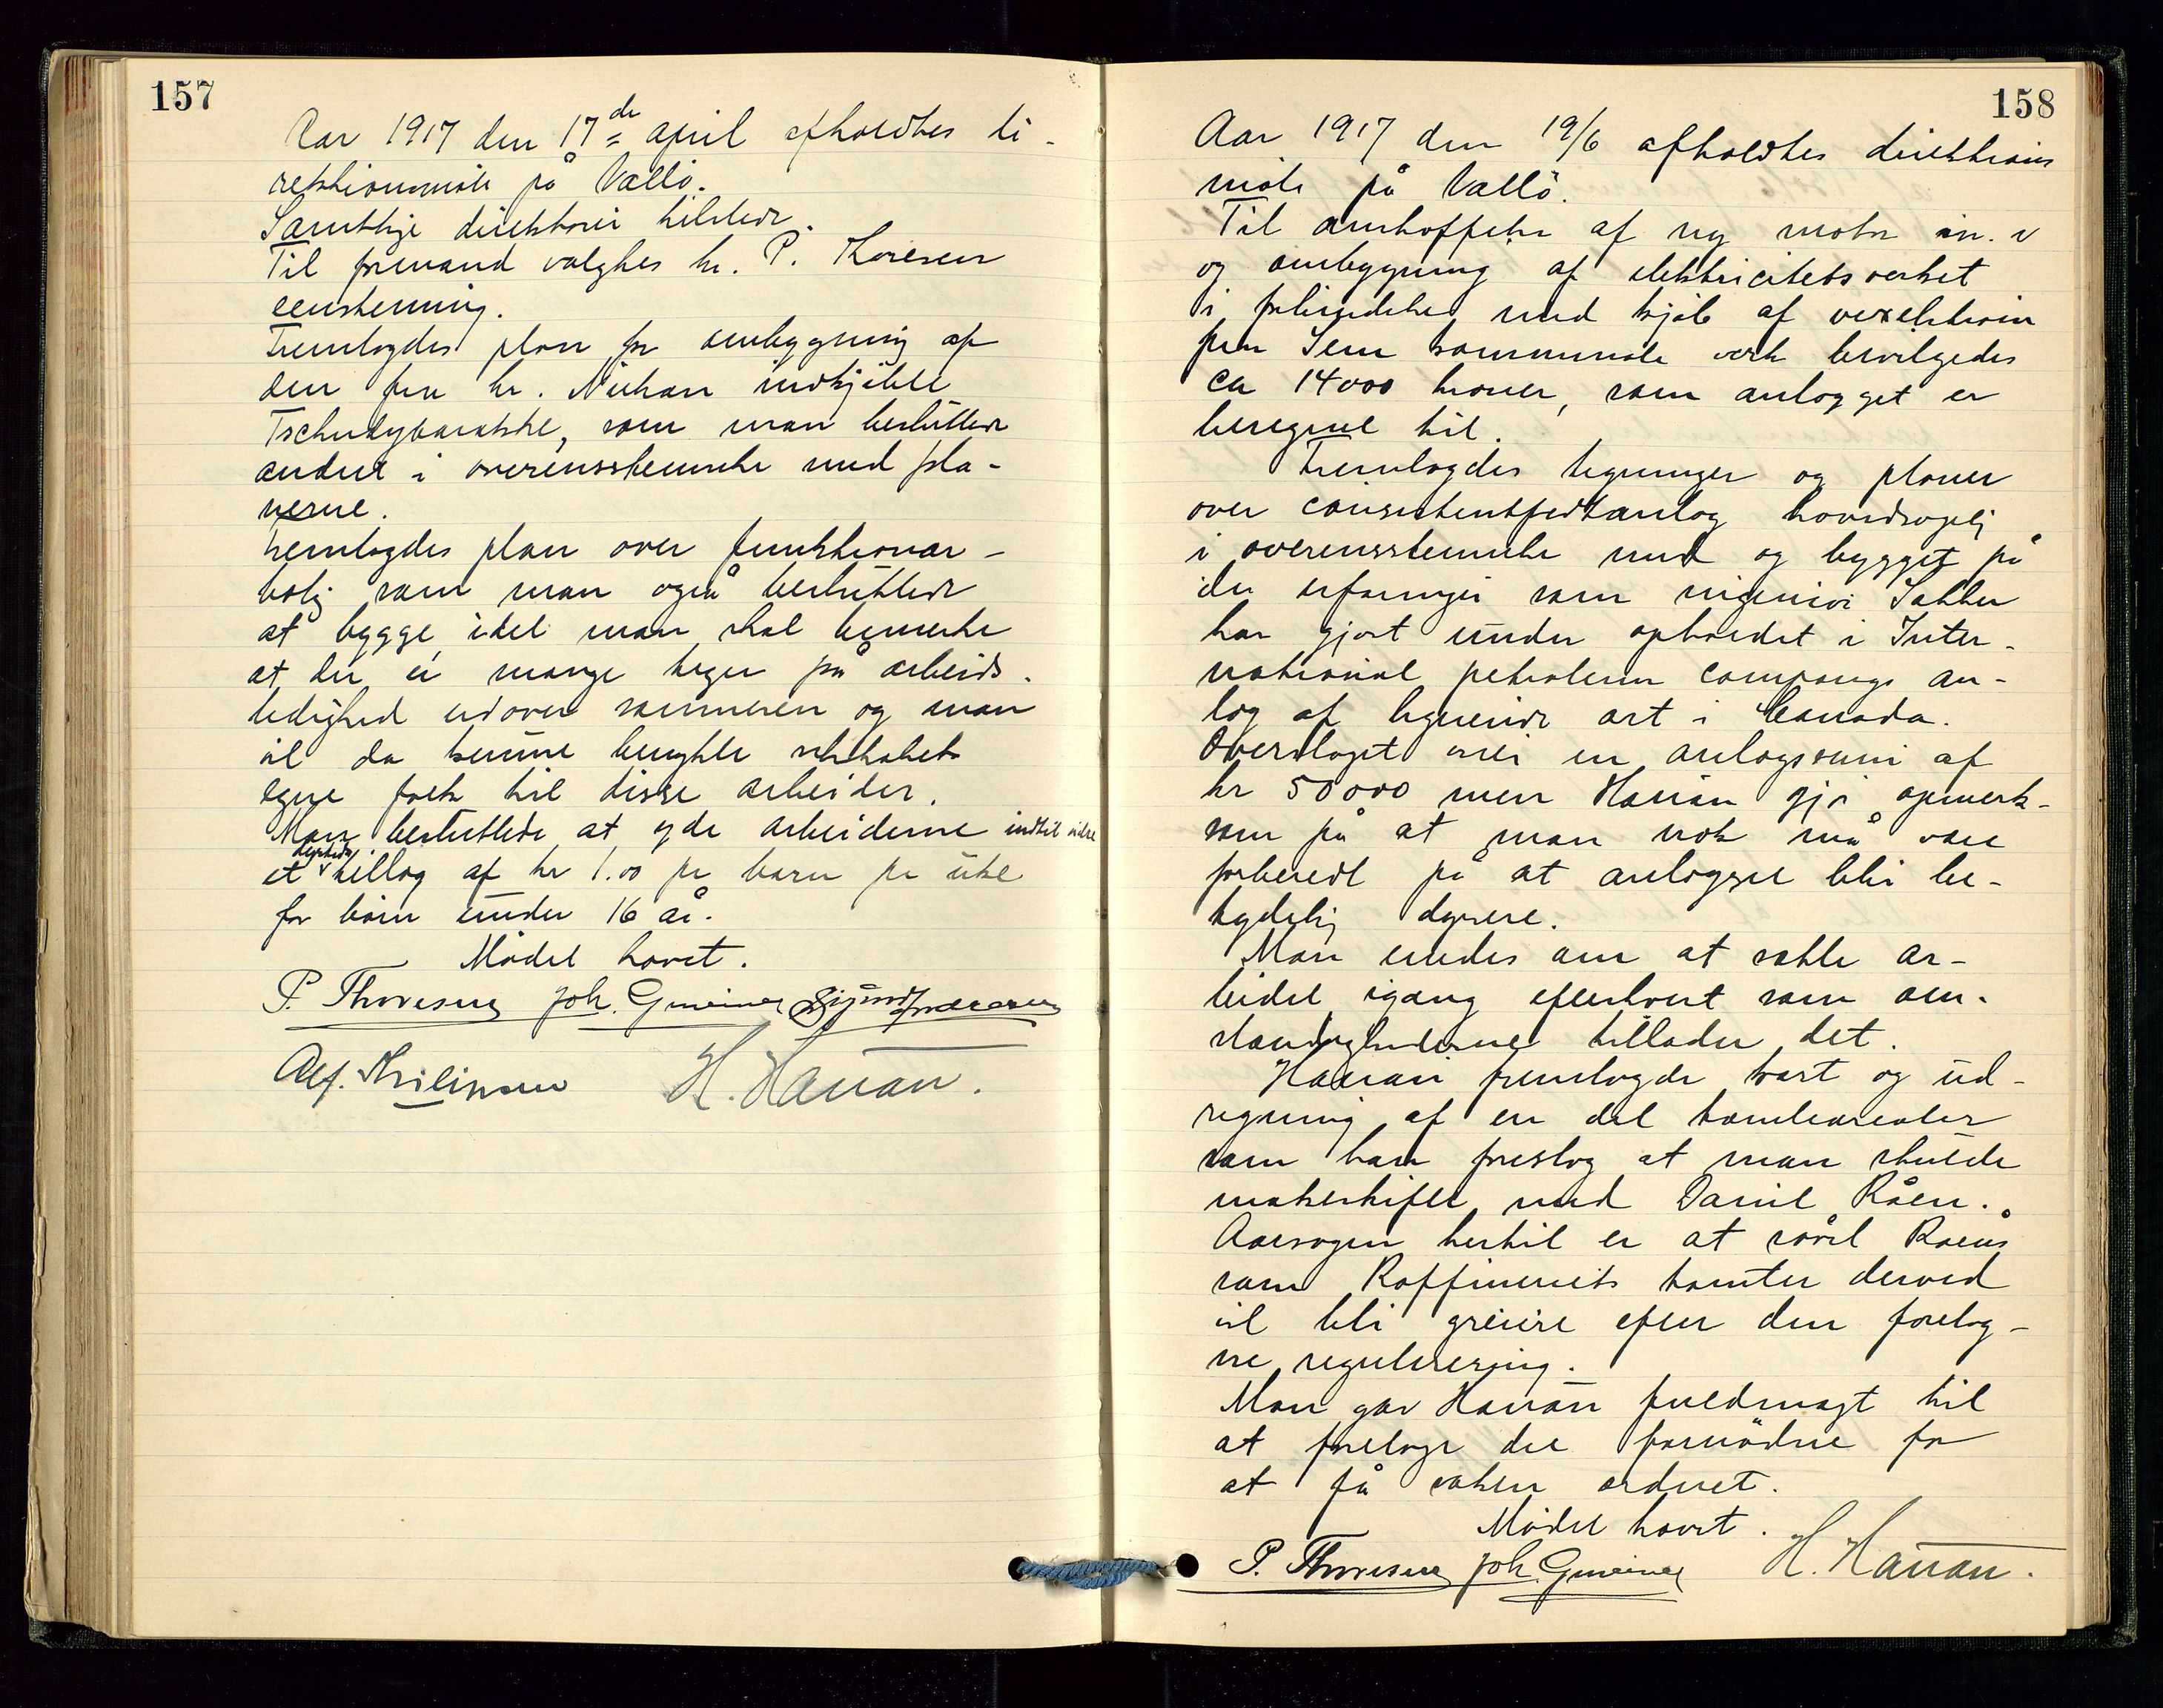 157
Aar 1917 den 17de april afholdtes di-
rektionsmöte på Vallö.
Samtlige direktörer tilstede.
Til formand valgtes hr. P. Thoresen
eenstemmig.
Fremlagdes plan for ombygning af
den fra hr. indkjöbte
Tschudybarakke, som man besluttede
andret i overensstemmelse med pla-
nerne.
Fremlagdes plan over funktionær-
bolig som man også besluttede
at bygge, idet man skal bemerke
at der er mange tegn på arbeids-
ledighed udover sommeren og man
vil da kunne benytte selskabets
egne folk til disse arbeider.
Man besluttede at yde arbeiderne indtil videre
et dyrtids tillæg af kr 1.00 pr barn pr uke
for börn under 16 år.
Mödet hævet.
P. Thoresen Joh. Gmeiner Sigurd Andersen
Alf. H. Hauan.
158
Aar 1917 den 19/6 afholdtes direktions
möte på Vallö.
Til anskaffelse af ny motor m. v
og ombygning af elektricitetsverket
i forbindelse med kjöb af vexelström
fra Sem kommunale verk bevilgedes
ca 14000 kroner, som anlægget er
beregnet til.
Fremlagdes tegninger og planer
over consistentfedtanlæg hovedsagelig
i overensstemmelse med og bygget på
de erfaringer som ingeniör
har gjort under opholdet i Inter-
national petroleum companys an-
læg af lignende art i Canada.
Overslaget viser en anlægssum af
kr 50000 men Hauan gjör opmerk-
som på at man nok må være
forberedt på at anlægget blir be-
tydelig dyrere.
Man enedes om at sætte ar-
beidet igang efterhvert som om-
stændighederne tillader det.
Hauan fremlagde kart og ud-
regning af en del tomtearealer
som han foreslog at man skulde
makeskifte med Daniel Råen.
Aarsagen hertil er at såvel Råens
som Raffineriets tomter derved
vil bli greiere efter den foretag-
ne regulerering.
Man gav Hauan fuldmagt til
at foretage det fornödne for
at få saken ordnet.
Mödet hævet.
P. Thoresen Joh. Gmeiner H. Hauan.